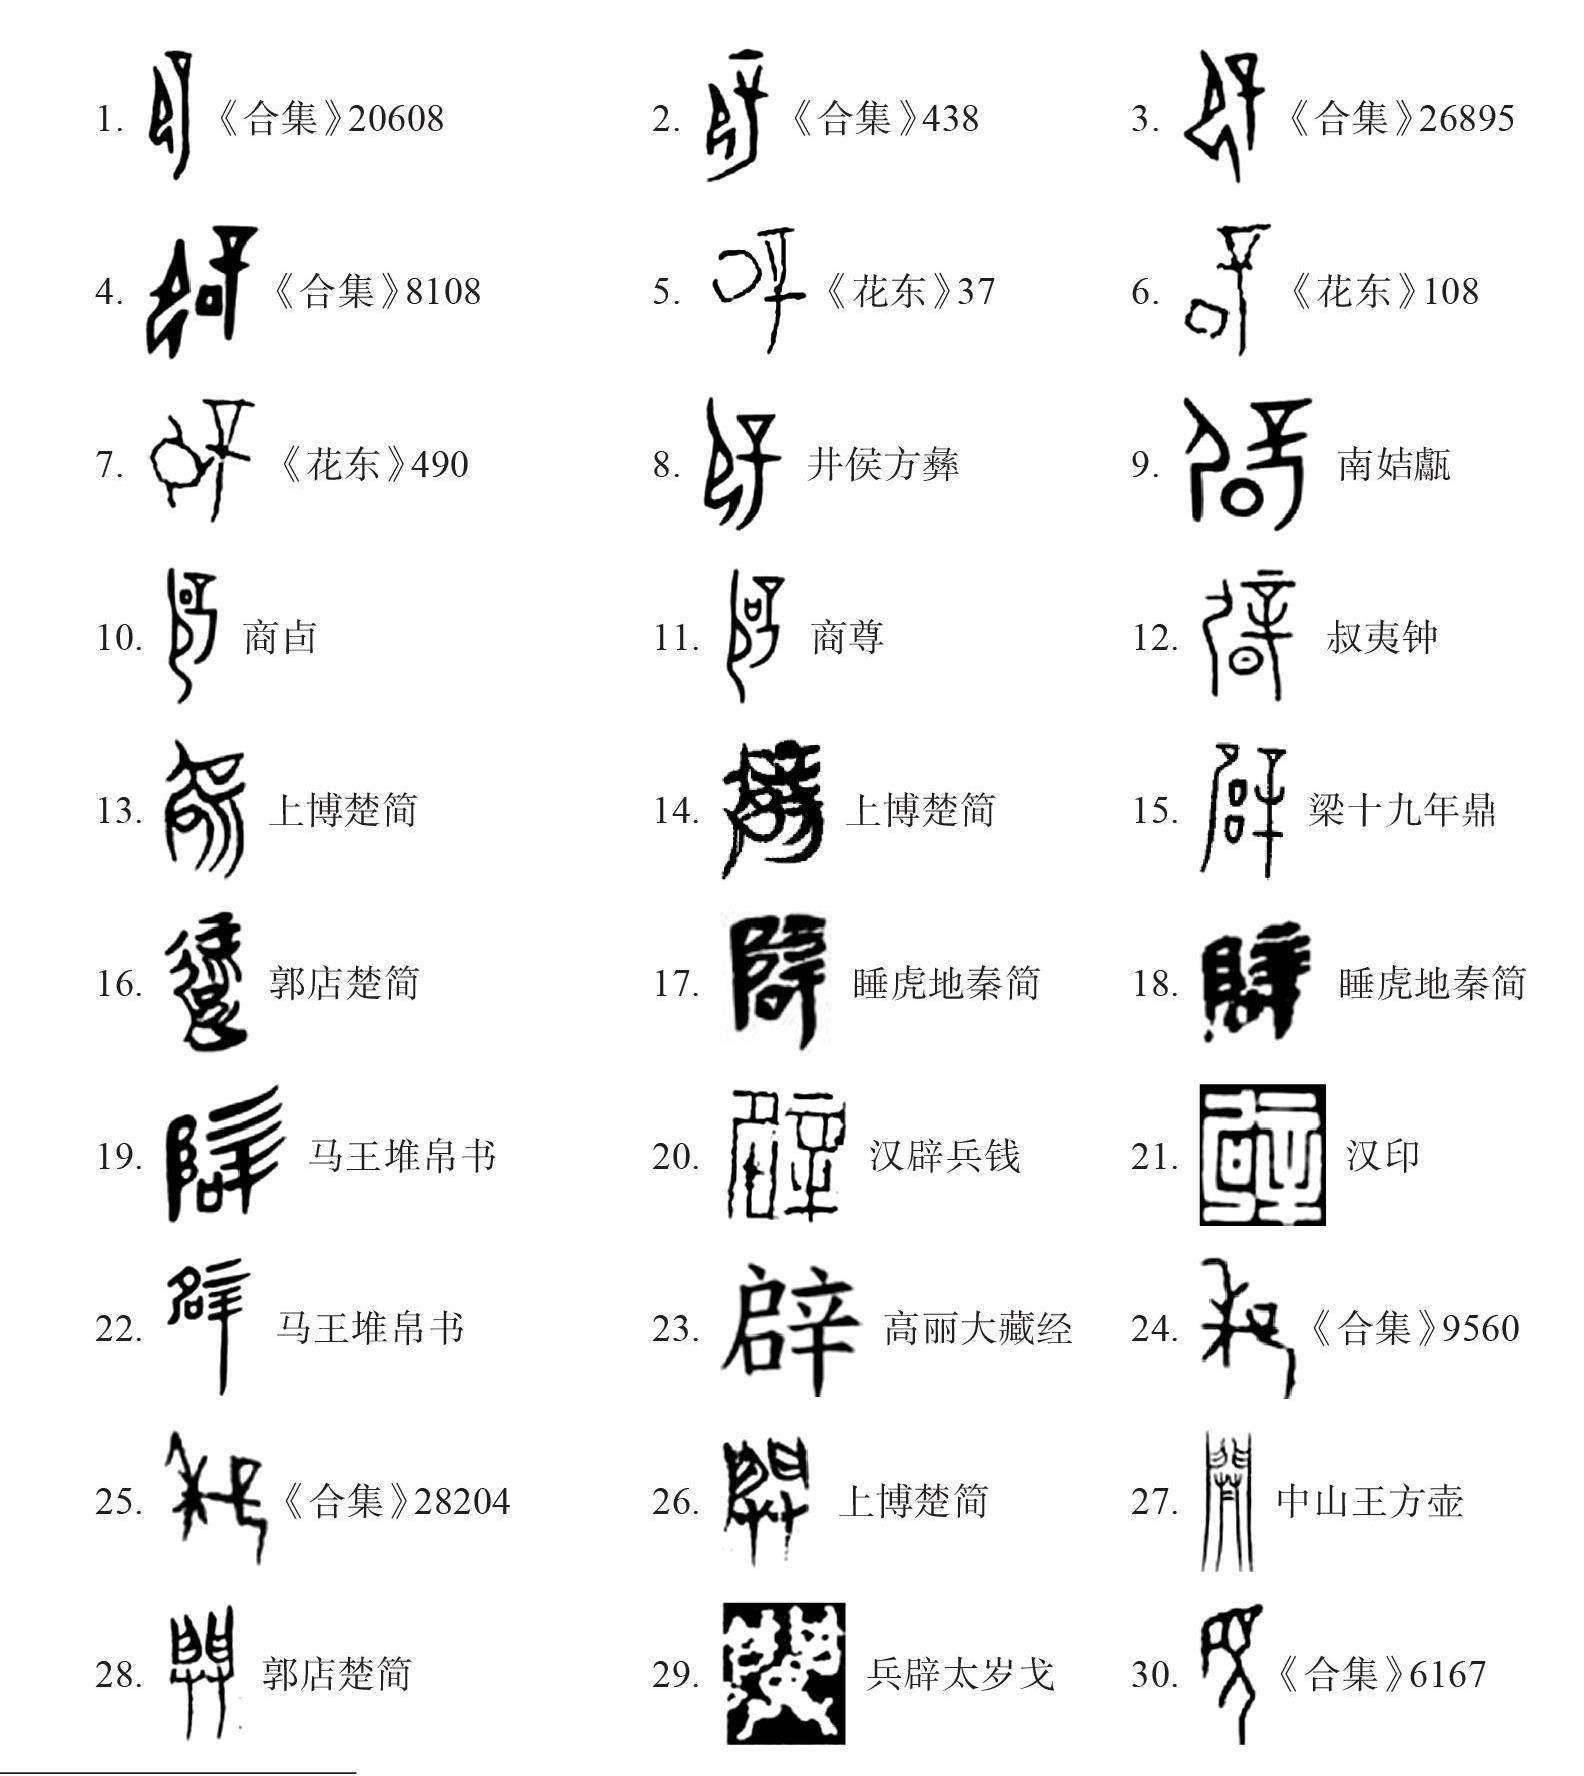 1. 《合集》20608 2. 《合集》438 3. 《合集》26895
4. 《合集》8108 5. 《花东》37 6. 《花东》108
7. 《花东》490 8. 井侯方彝 9. 南姞甗
10. 商卣 11. 商尊 12. 叔夷钟
13. 上博楚简 14. 上博楚简 15. 梁十九年鼎
16. 郭店楚简 17. 睡虎地秦简 18. 睡虎地秦简
19. 马王堆帛书 20. 汉辟兵钱 21. 汉印
22. 马王堆帛书 23. 辟 高丽大藏经 24. 《合集》9560
25. 《合集》28204 26. 上博楚简 27. 中山王方壶
28. 郭店楚简 29. 兵辟太岁戈 30. 《合集》6167